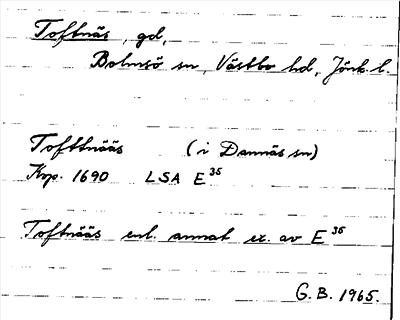 Toftnäs, gd,
Bolmsö sn, Västbo hd, Jönk. l.
Tofttnääs (i Dannäs sn)
Kop. 1690 LSA E 35
Toftnääs enl. annat ex. av E 35
G.B. 1965.